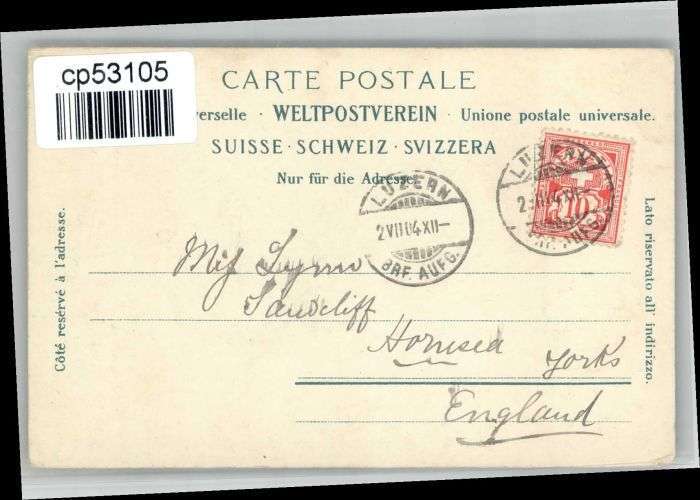 cp53105
CARTE POSTALE
erselle · WELTPOSTVEREIN · Unione postale universale.
SUISSE · SCHWEIZ · SVIZZERA
Nur für die Adresse
LUZERN
2 VII 04 XII–
BRF. AUFG.
LUZERN
2 VII 04 XII–
BRF. AUFG.
10
Côté resérvé à l'adresse.
Lato riservato all' indirizzo.
Miss
Sandcliff
Hornsea
Yorks
England